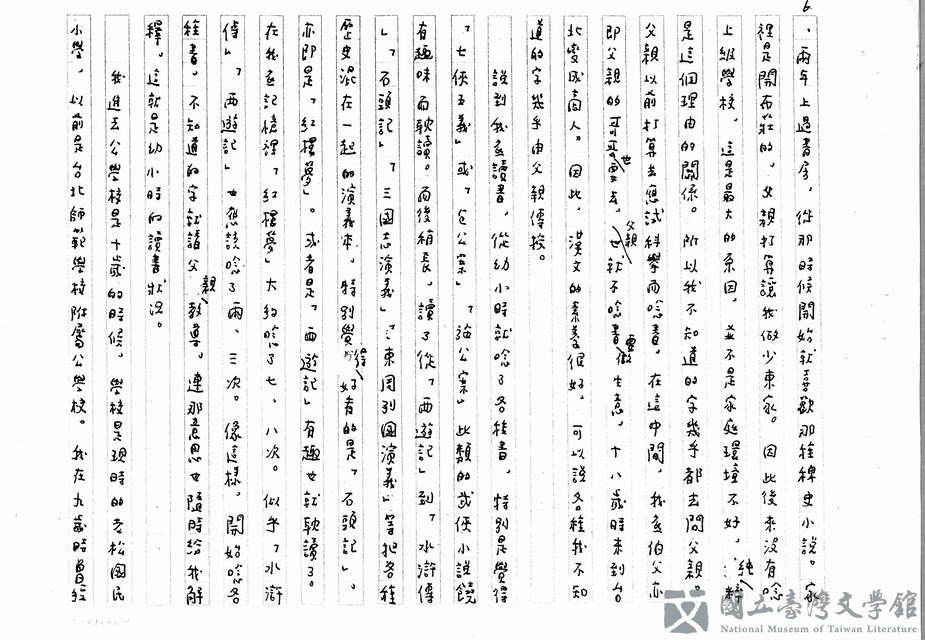 6.
、兩年上過書房，從那時候開始就喜歡那種稗史小說。家
裡是開布莊的，父親打算讓我做少東家。因此後來沒有唸
上級學校，這是最大的原因，並不是家庭環境不好，純粹
是這個理由的關係。所以我不知道的字幾乎都去問父親。
父親以前打算去應試科舉而唸書，在這中間，我家伯父亦
即父親的哥哥去世，父親就不唸書要做生意，十八歲時來到台
北變成商人。因此，漢文的素養很好，可以說各種我不知
道的字幾乎由父親傳授。
說到我家讀書，從幼小時就唸了各種書，特別是覺得
「七俠五義」或「包公案」「施公案」此類的武俠小說饒
有趣味而耽讀。而後稍長，讀了從「西遊記」到「水滸傳
」「石頭記」「三國志演義」「東周列國演義」等把各種
歷史混在一起的演義本，特別覺得好看的是「石頭記」，
亦即是「紅樓夢」。或者是「西遊記」有趣也就耽讀了。
在我底記憶裡「紅樓夢」大約唸了七、八次。似乎「水滸
傳」「西遊記」也應該唸了兩、三次。像這樣，開始唸各
種書，不知道的字就請父親教導，連那意思也隨時給我解
釋。這就是幼小時的讀書狀況。
我進去公學校是十歲的時候，學校是現時的老松國民
小學，以前是台北師範學校附屬公學校。我在九歲時曾經
國立臺灣文學館
National Museum of Taiwan Literature